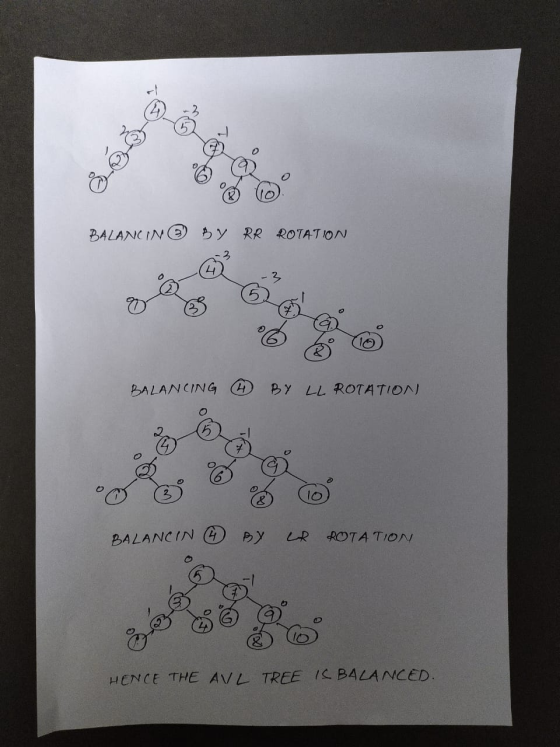 -1
4 -3
2 3 5 -1
1 2 7 0
0 1 0 6 9 0
0 8 10
BALANCIN 3 BY RR ROTATION
-3
0 4 -3
2 5 -1
1 3 0 7 0
0 6 9 0
8 0 10
BALANCING 4 BY LL ROTATION
0
2 5 -1
0 4 7 0
2 0 6 9 0
0 1 0 3 0 8 10
BALANCIN 4 BY LR ROTATION
0
1 5 -1
1 3 0 7 0
0 2 4 0 6 9 0
1 0 8 10
HENCE THE AVL TREE IS BALANCED.